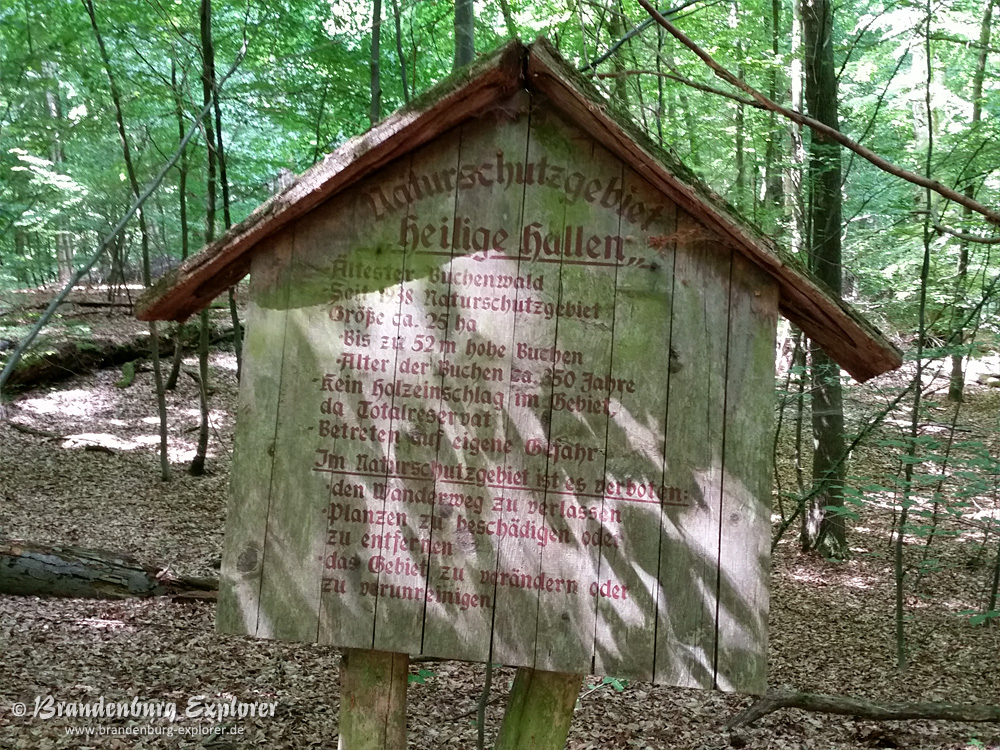 Naturschutzgebiet
„Heilige Hallen"
-Ältester Buchenwald
-Seit 1938 Naturschutzgebiet
-Größe ca. 25 ha
-Bis zu 52 m hohe Buchen
-Alter der Buchen ca. 350 Jahre
-Kein Holzeinschlag im Gebiet,
da Totalreservat
-Betreten auf eigene Gefahr-
Im Naturschutzgebiet ist es verboten:
·den Wanderweg zu verlassen
·Planzen zu beschädigen oder
zu entfernen
·das Gebiet zu verändern oder
zu verunreinigen
© Brandenburg Explorer
www.brandenburg-explorer.de